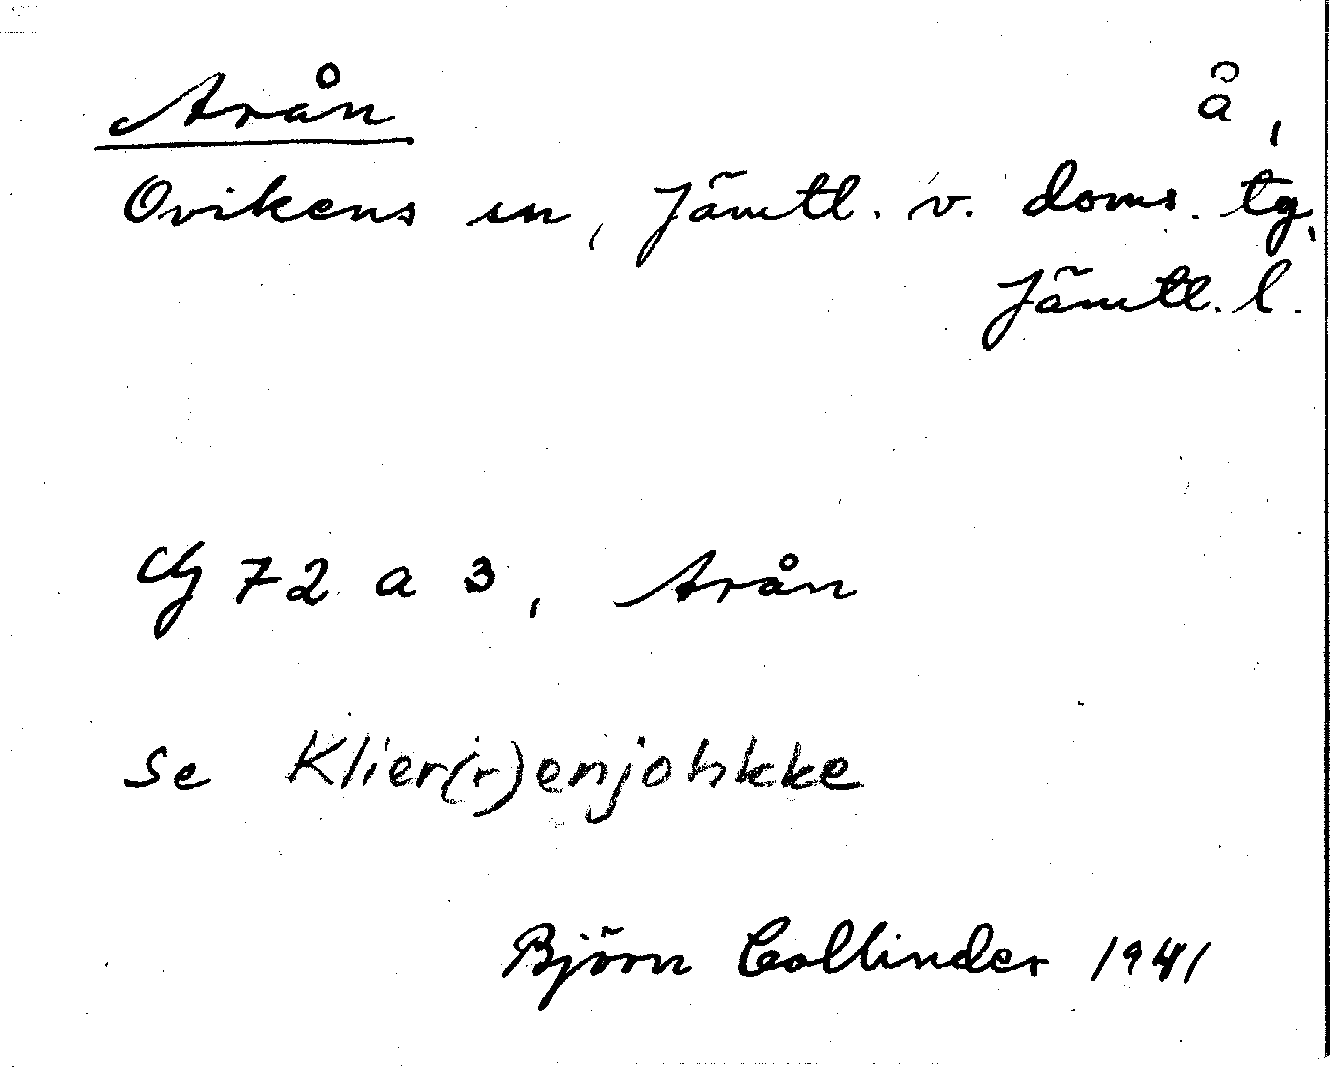 Arån å,
Ovikens sn, Jämtl. v. doms. tg,
Jämtl. l.
Cg 72 a 3, Arån
se Klier(r)enjohkke
Björn Collinder 1941